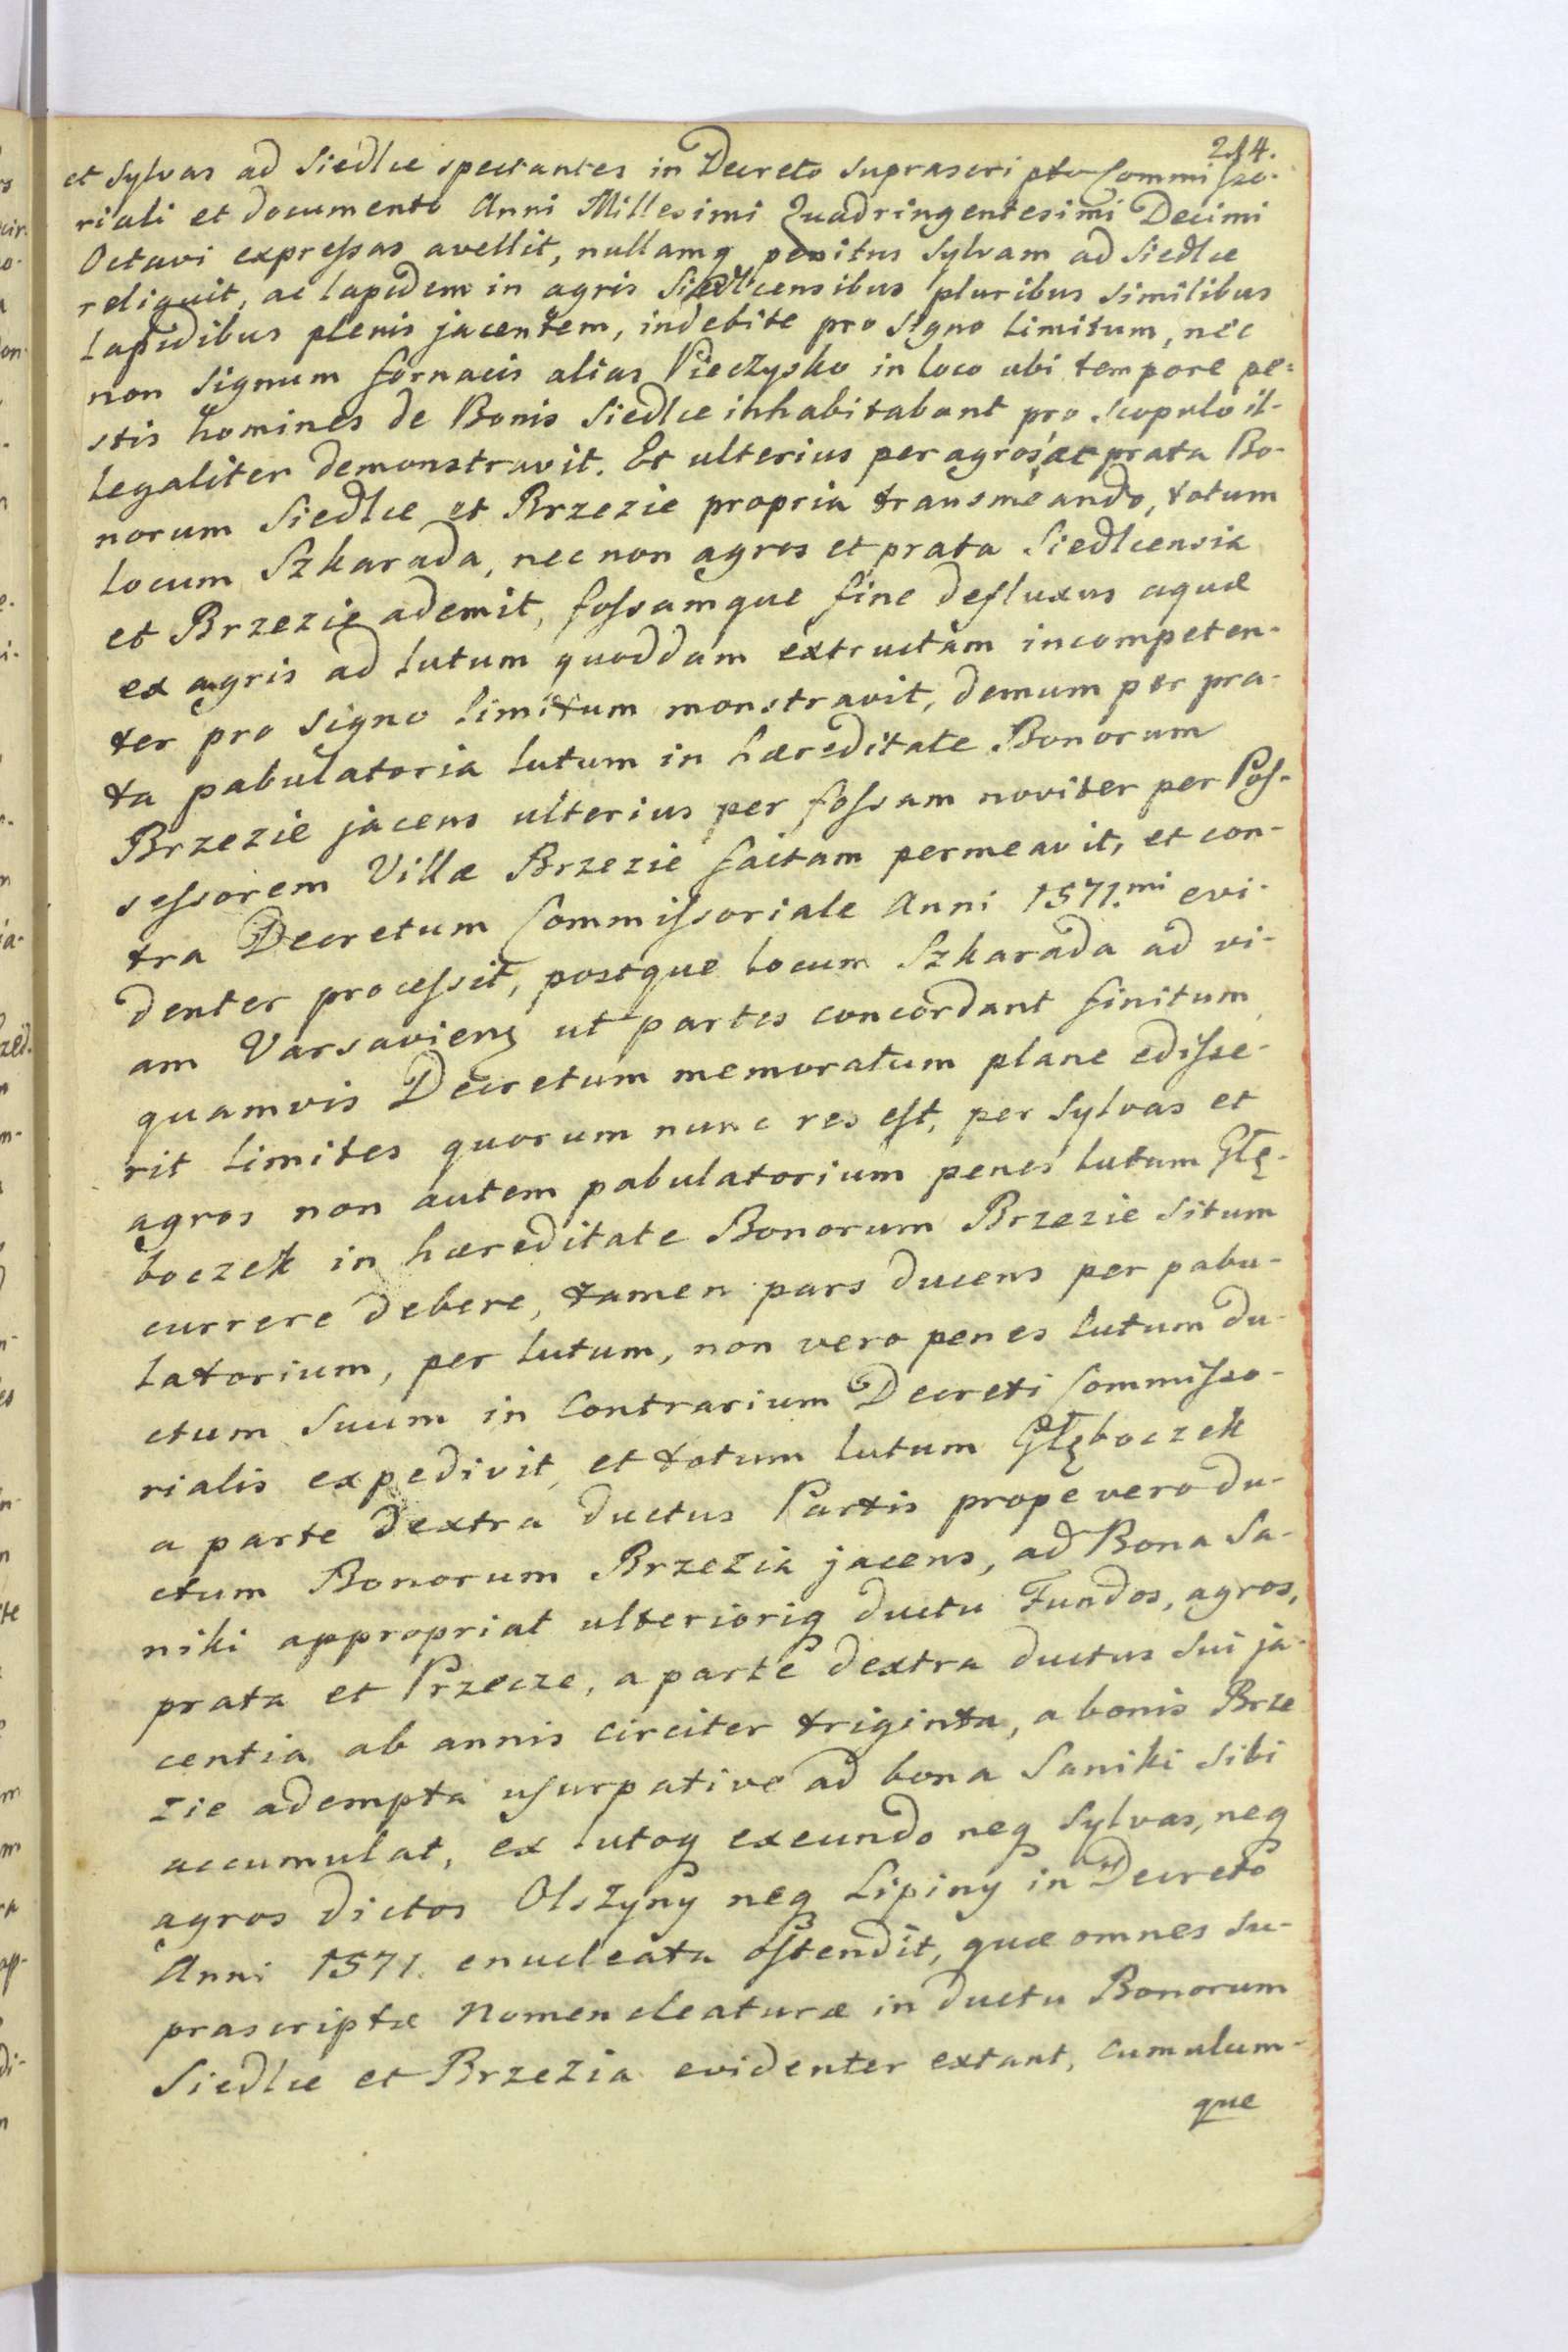 214.
et Sylvas ad Siedlce spectantes in Decreto suprascripto Commisso-
riali et documento Anni Millesimi Quadringentesimi Decimi
Octavi expressas avellit, nullamq penitus Sylvam ad Siedlce
reliquit, ac lapidem in agris Siedlcensibus pluribus similibus
lapidibus plenis jacentem, indebite pro signo limitum, nec
non signum fornacis alias Pieczysko in loco ubi tempore pe-
stis homines de Bonis Siedlce inhabitabant pro scopulo il-
legaliter demonstravit. Et ulterius per agros ac prata Bo-
norum Siedlce et Brzezie propria transmeando, totum
locum Szkarada, nec non agros et prata Siedlcensia
et Brzezie ademit, fossamque fine defluxus aquæ
ex agris ad lutum quoddam extructam incompeten-
ter pro signo limitum monstravit, demum per pra-
ta pabulatoria lutum in hæreditate Bonorum
Brzezie jacens ulterius per fossam noviter per Pos-
sessorem Villæ Brzezie factam permeavit, et con-
tra Decretum Commissoriale Anni 1571.mi evi-
denter processit, postque locum Szkarada ad vi-
am Varsavieng ut partes concordant finitum,
quamvis Decretum memoratum plane edisse-
rit limites quorum nunc res est, per Sylvas et
agros non autem pabulatorium penes lutum Głę-
boczek in hæreditate Bonorum Brzezie situm
currere debere, tamen pars ducens per pabu-
latorium, per lutum, non vero penes lutum du-
ctum suum in Contrarium Decreti Commisso-
rialis expedivit, et totum lutum Głęboczek
a parte dextra ductus Partis prope vero du-
ctum Bonorum Brzezia jacens, ad Bona Sa-
niki appropriat ulteriorig ductu Fundos, agros,
prata et Przecze, a parte dextra ductus sui ja-
centia ab annis circiter triginta, a bonis Brze
zie adempta usurpative ad bona Saniki sibi
accumulat, ex lutoq exeundo neq Sylvas, neq
agros dictos Olszyny neq Lipiny in Decreto
Anni 1571. enucleata ostendit, quæ omnes su-
prascriptæ Nomencleaturæ in ductu Bonorum
Siedlce et Brzezia evidenter extant, cumulum-
que